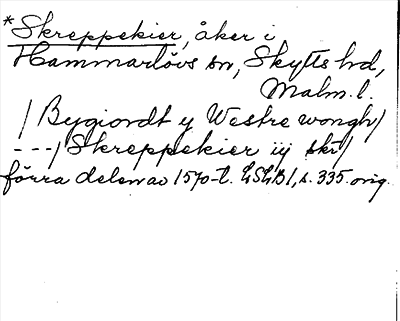 *Skreppekier, åker i
Hammarlövs sn, Skytts hd,
Malm. l.
/Bygiordt y Westre wongh/
---/Skreppekier iij skr/
förra delen av 1570-t. LSLB1, s. 335. orig.